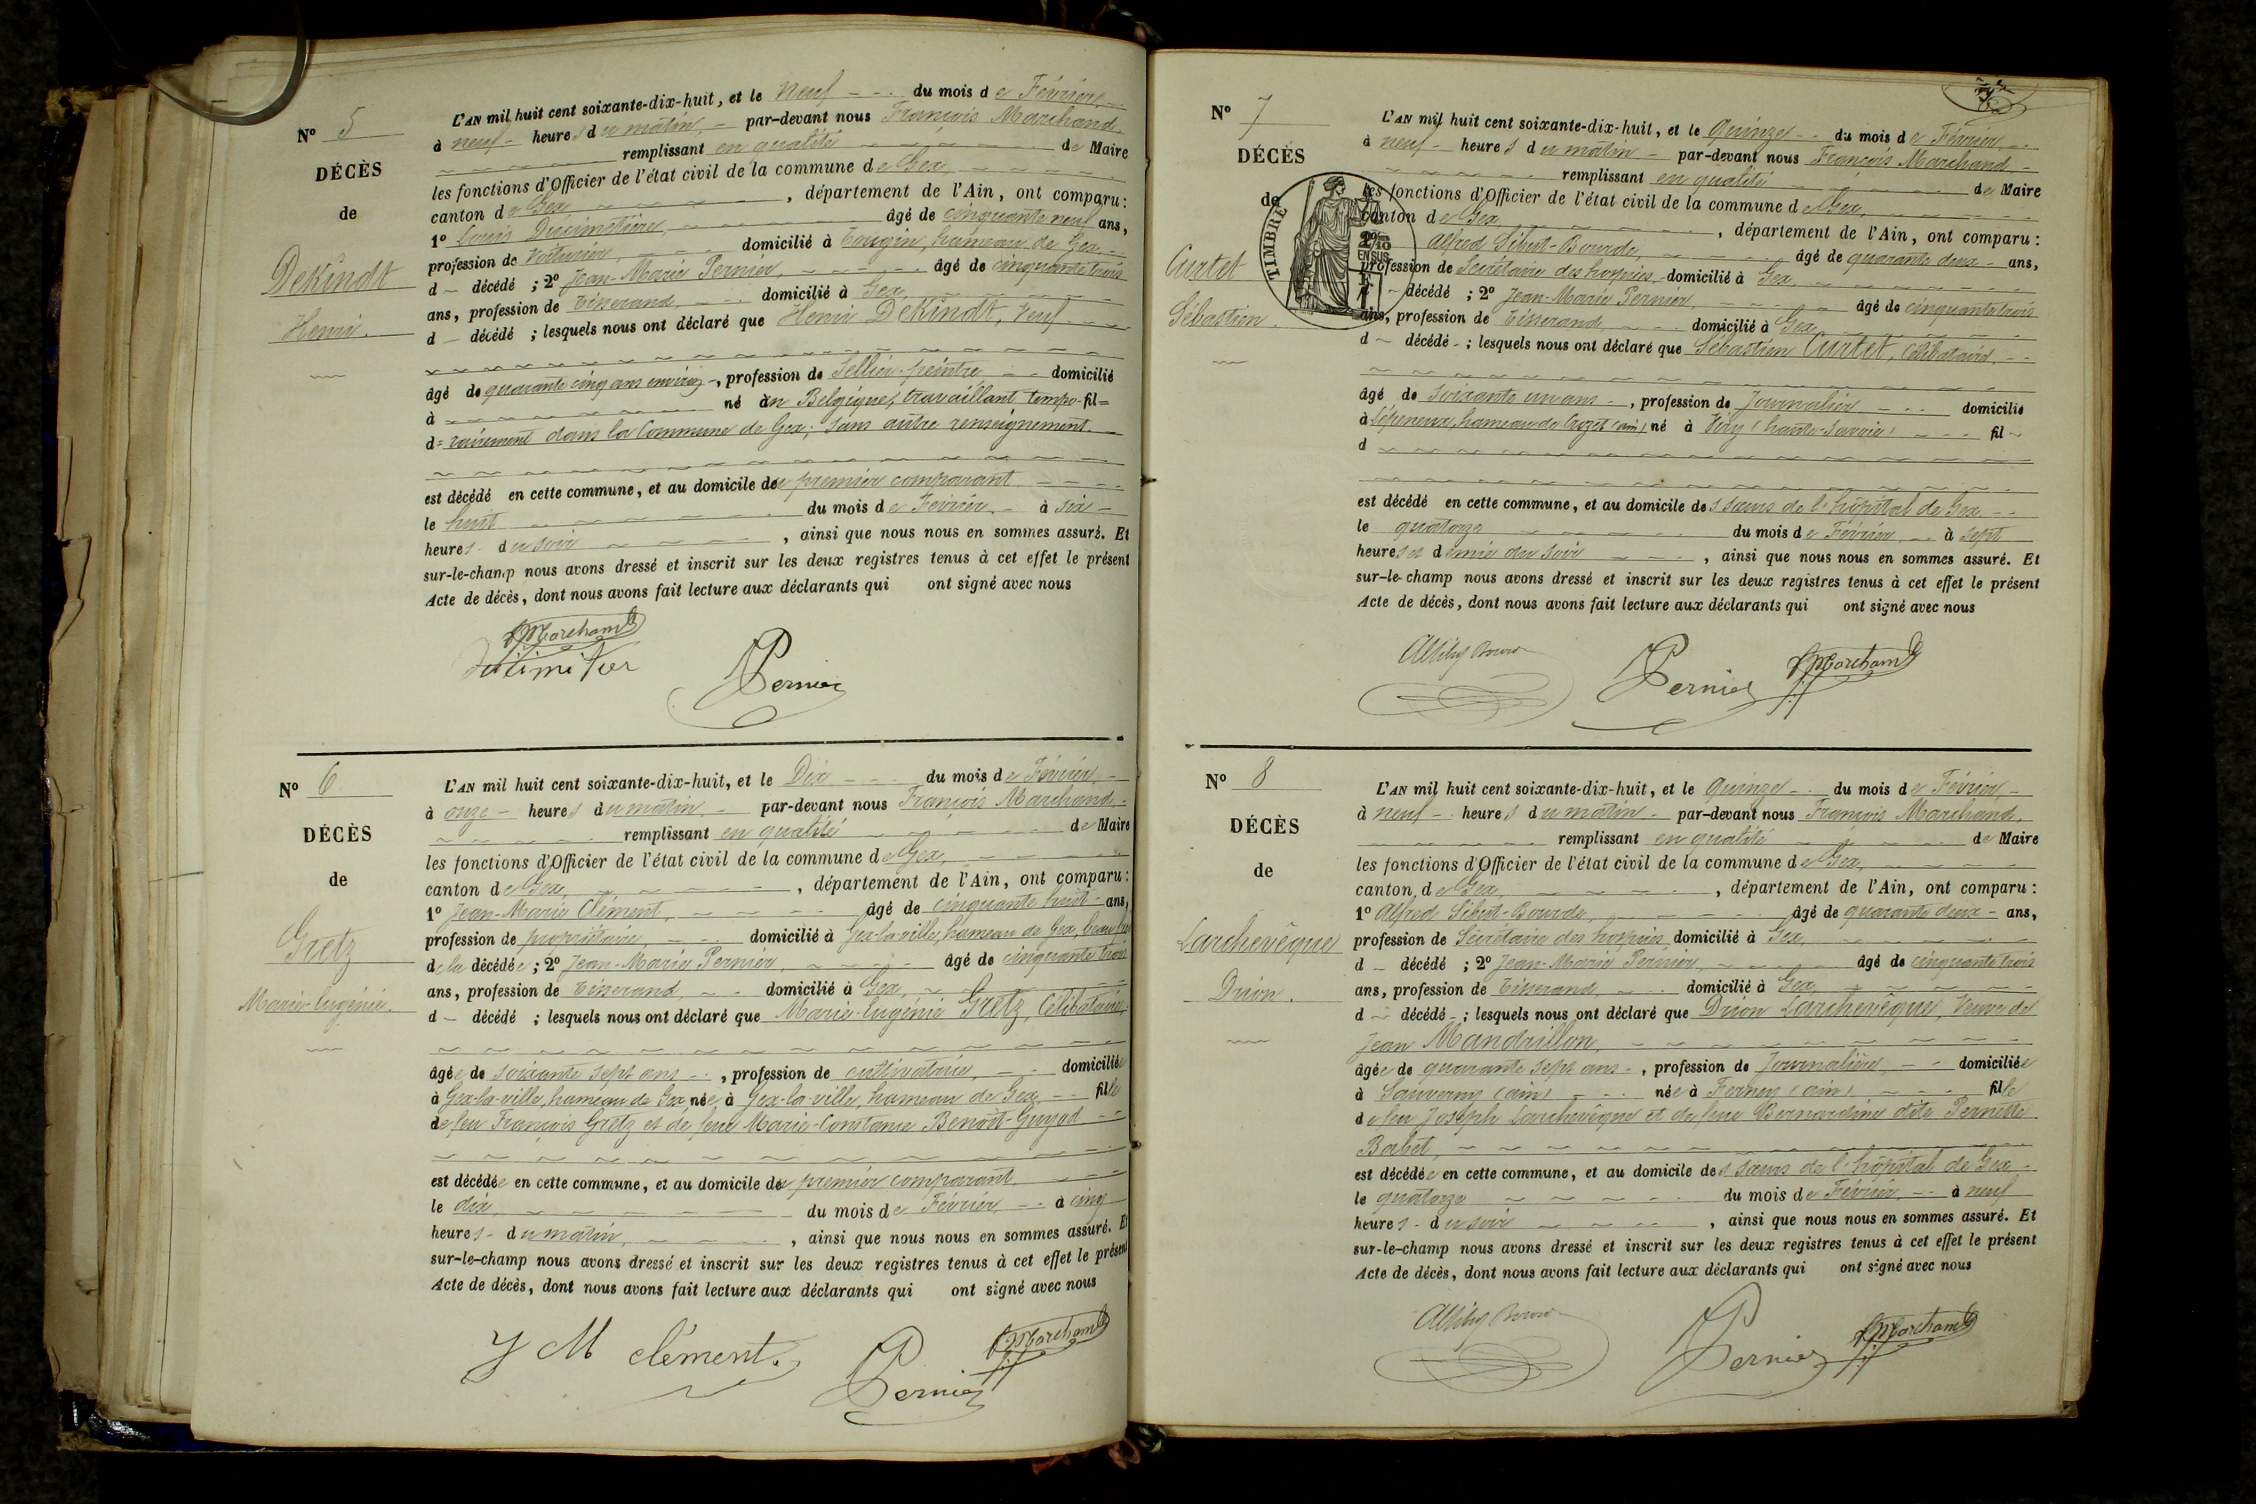 N° 5
DÉCÈS
de
DeKindt
Henri.
L'AN mil huit cent soixante-dix-huit, et le neuf du mois de Février
à neuf heures du matin, par-devant nous François Marchand
remplissant en qualité de Maire
les fonctions d'Officier de l'état civil de la commune de Gex,
canton de Gex, département de l'Ain, ont comparu :
1° Louis âgé de cinquante neuf ans,
profession de voiturier, domicilié à Tougin, hameau de Gex
d décédé ; 2° Jean-Marie Pernier, âgé de cinquante trois
ans, profession de Tisserand domicilié à Gex,
d décédé ; lesquels nous ont déclaré que Henri DeKindt, veuf
âgé de quarante cinq ans environ, profession de Sellier-peintre domicilié
à né en Belgique, travaillant tempo- fil=
d= rairement dans la Commune de Gex; sans autre renseignement.
est décédé en cette commune, et au domicile du premier comparant
le huit du mois de Février à six
heures du soir, ainsi que nous nous en sommes assuré. Et
sur-le-champ nous avons dressé et inscrit sur les deux registres tenus à cet effet le présent
Acte de décès, dont nous avons fait lecture aux déclarants qui ont signé avec nous
Marchand
Pernier
N° 6
DÉCÈS
de
Gretz
Marie-Eugénie.
L'AN mil huit cent soixante-dix-huit, et le Dix du mois de Février,
à onze heures du matin par-devant nous François Marchand
remplissant en qualité de Maire
les fonctions d'Officier de l'état civil de la commune de Gex,
canton de Gex, département de l'Ain, ont comparu :
1° Jean-Marie Clément, âgé de cinquante huit ans,
profession de propriétaire, domicilié à Gex-la-ville, hameau de Gex,
de la décédée ; 2° Jean-Marie Pernier, âgé de cinquante trois
ans, profession de Tisserand domicilié à Gex,
d décédé ; lesquels nous ont déclaré que Marie-Eugénie Gretz, Célibataire,
âgée de soixante sept ans, profession de cultivatrice, domiciliée
à Gex-la-ville, hameau de Gex née à Gex-la-ville, hameau de Gex, fille
de feu François Gretz et de feue Marie-Constance Benoît-Guyod
est décédée en cette commune, et au domicile du premier comparant
le dix du mois de Février à cinq
heures du matin, ainsi que nous nous en sommes assuré. Et
sur-le-champ nous avons dressé et inscrit sur les deux registres tenus à cet effet le présent
Acte de décès, dont nous avons fait lecture aux déclarants qui ont signé avec nous
J M clément
Pernier
Marchand
N° 7
DÉCÈS
de
Curtet
Sébastien.
TIMBRE
2/10
EN SUS
L'AN mil huit cent soixante-dix-huit, et le Quinze du mois de Février
à neuf heures du matin par-devant nous François Marchand
remplissant en qualité de Maire
les fonctions d'Officier de l'état civil de la commune de Gex,
canton de Gex, département de l'Ain, ont comparu :
Alfred Sibut-Bourde, âgé de quarante deux ans,
profession de Secrétaire des hospices domicilié à Gex,
décédé ; 2° Jean-Marie Pernier, âgé de cinquante trois
ans, profession de Tisserand domicilié à Gex
d décédé ; lesquels nous ont déclaré que Sébastien Curtet, célibataire,
âgé de soixante un ans, profession de Journalier domicilié
à hameau de Crozet (ain) né à Viry (haute-Savoie) fil
d
est décédé en cette commune, et au domicile des sœurs de l'hôpital de Gex
le quatorze du mois de Février à sept
heures et demie du soir, ainsi que nous nous en sommes assuré. Et
sur-le-champ nous avons dressé et inscrit sur les deux registres tenus à cet effet le présent
Acte de décès, dont nous avons fait lecture aux déclarants qui ont signé avec nous
Pernier
Marchand
N° 8
DÉCÈS
de
Larchevêque
Drion.
L'AN mil huit cent soixante-dix-huit, et le Quinze du mois de Février,
à neuf heures du matin par-devant nous François Marchand,
remplissant en qualité de Maire
les fonctions d'Officier de l'état civil de la commune de Gex,
canton de Gex, département de l'Ain, ont comparu :
1° Alfred Sibut-Bourde, âgé de quarante deux ans,
profession de Secrétaire des hospices domicilié à Gex,
d décédé ; 2° Jean-Marie Pernier, âgé de cinquante trois
ans, profession de Tisserand domicilié à Gex,
d décédé ; lesquels nous ont déclaré que Drion Larchevêque, Veuve de
Jean Mandrillon,
âgée de quarante sept ans, profession de Journalière, domiciliée
à Sauverny (ain) née à Ferney (ain) fille
de feu Joseph Larchevêque et de feue Bernardine dite Pernette
Barbet,
est décédée en cette commune, et au domicile des sœurs de l'hôpital de Gex
le quatorze du mois de Février à neuf
heures du soir, ainsi que nous nous en sommes assuré. Et
sur-le-champ nous avons dressé et inscrit sur les deux registres tenus à cet effet le présent
Acte de décès, dont nous avons fait lecture aux déclarants qui ont signé avec nous
Pernier
Marchand